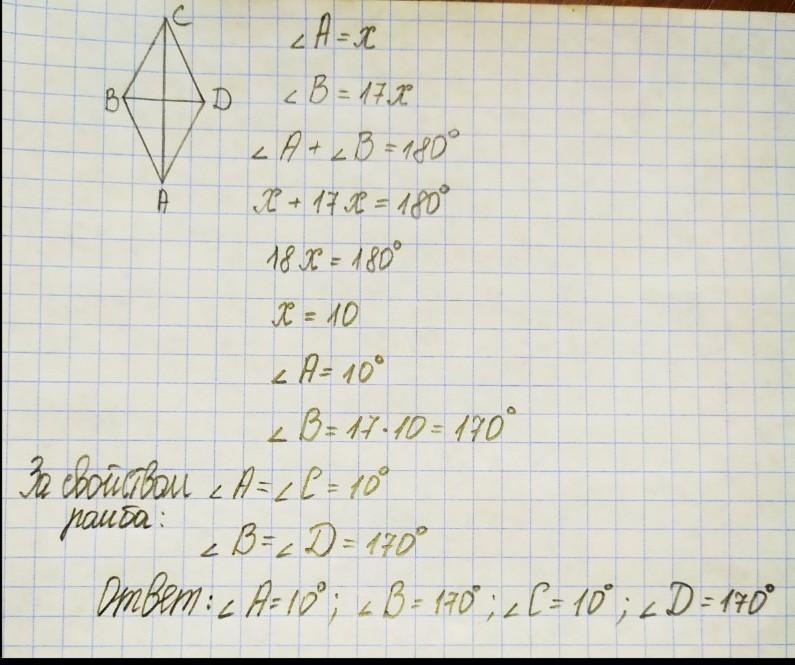 C
B
D
A
∠A = x
∠B = 17x
∠A + ∠B = 180°
x + 17x = 180°
18x = 180°
x = 10
∠A = 10°
∠B = 17·10 = 170°
За свойством ∠A = ∠C = 10°
ромба:
∠B = ∠D = 170°
Ответ: ∠A = 10°; ∠B = 170°; ∠C = 10°; ∠D = 170°